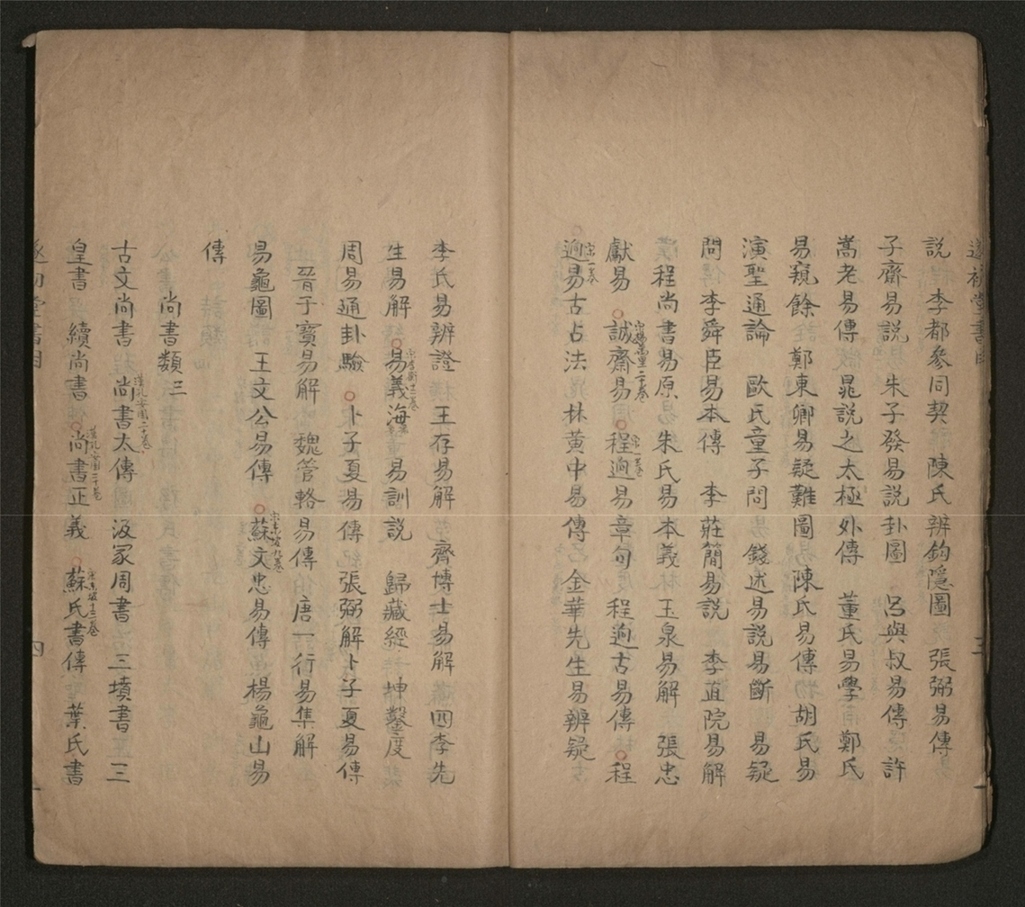 遂初堂書目
說　李都參同契　陳氏辨鈎隱圖　張弼易傳
子齋易說　朱子發易說卦圖　呂與叔易傳　許
嵩老易傳　晁說之太極外傳　董氏易學　鄭氏
易窺餘　鄭東卿易疑難圖　陳氏易傳　胡氏易
演聖通論　歐氏童子問　錢述易說易斷　易疑
問　李舜臣易本傳　李莊簡易說　李直院易解
程尚書易原　朱氏易本義　玉泉易解　張忠
獻易　○誠齋易　○程逈易章句　程逈古易傳　○程
逈易古占法　林黃中易傳　金華先生易辨疑
李氏易辨證　王存易解　齊博士易解　四李先
生易解　○易義海　易訓說　歸藏經　坤鑿度
周易通卦驗　○卜子夏易傳　張弼解卜子夏易傳
晉于寶易解　魏管輅易傳　唐一行易集解
易龜圖　王文公易傳　○蘇文忠易傳　楊龜山易
傳
尚書類三
古文尚書　尚書太傳　汲冢周書　三墳書　三
皇書　續尚書　○尚書正義　○蘇氏書傳　葉氏書
遂初堂書目　四